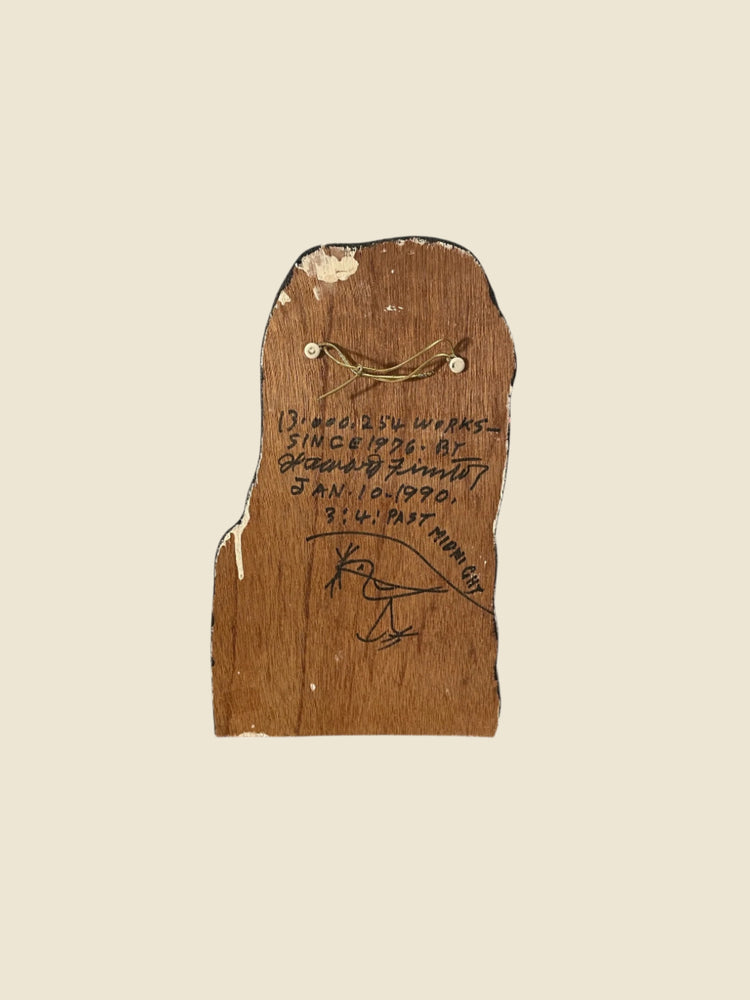 13.000.254 WORKS—
SINCE 1976. BY
Howard Finster
JAN.10-1990.
3:4: PAST MIDNIGHT